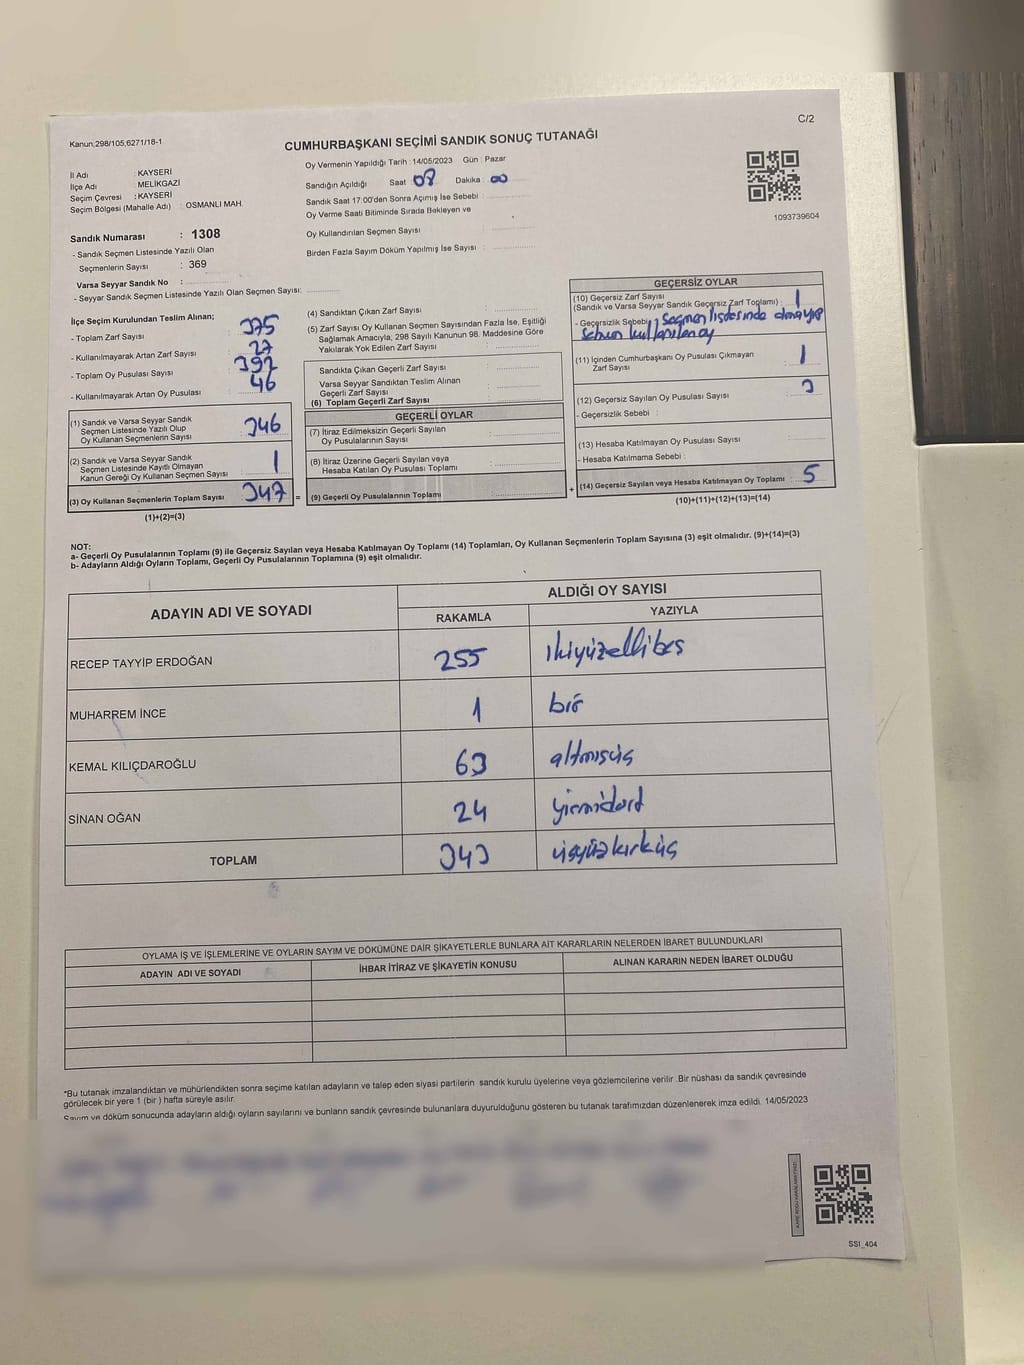 C/2
Kanun;298/105,6271/18-1
CUMHURBAŞKANI SEÇİMİ SANDIK SONUÇ TUTANAĞI
İl Adı : KAYSERİ
İlçe Adı : MELİKGAZİ
Seçim Çevresi : KAYSERİ
Seçim Bölgesi (Mahalle Adı) : OSMANLI MAH.
Oy Vermenin Yapıldığı Tarih : 14/05/2023 Gün : Pazar
Sandığın Açıldığı Saat 08 Dakika : 00
Sandık Saat 17:00'den Sonra Açımış İse Sebebi :
Oy Verme Saati Bitiminde Sırada Bekleyen ve
Oy Kullandırılan Seçmen Sayısı :
Birden Fazla Sayım Döküm Yapılmış İse Sayısı :
1093739604
Sandık Numarası : 1308
- Sandık Seçmen Listesinde Yazılı Olan
Seçmenlerin Sayısı : 369
Varsa Seyyar Sandık No :
- Seyyar Sandık Seçmen Listesinde Yazılı Olan Seçmen Sayısı:
İlçe Seçim Kurulundan Teslim Alınan;
- Toplam Zarf Sayısı : 375
- Kullanılmayarak Artan Zarf Sayısı : 27
- Toplam Oy Pusulası Sayısı : 392
- Kullanılmayarak Artan Oy Pusulası : 46
(1) Sandık ve Varsa Seyyar Sandık
Seçmen Listesinde Yazılı Olup
Oy Kullanan Seçmenlerin Sayısı : 346
(2) Sandık ve Varsa Seyyar Sandık
Seçmen Listesinde Kayıtlı Olmayan
Kanun Gereği Oy Kullanan Seçmen Sayısı : 1
(3) Oy Kullanan Seçmenlerin Toplam Sayısı : 347 =
(1)+(2)=(3)
(4) Sandıktan Çıkan Zarf Sayısı :
(5) Zarf Sayısı Oy Kullanan Seçmen Sayısından Fazla İse, Eşitliği
Sağlamak Amacıyla, 298 Sayılı Kanunun 98. Maddesine Göre
Yakılarak Yok Edilen Zarf Sayısı :
Sandıkta Çıkan Geçerli Zarf Sayısı :
Varsa Seyyar Sandıktan Teslim Alınan
Geçerli Zarf Sayısı :
(6) Toplam Geçerli Zarf Sayısı :
GEÇERLİ OYLAR
(7) İtiraz Edilmeksizin Geçerli Sayılan
Oy Pusulalarının Sayısı :
(8) İtiraz Üzerine Geçerli Sayılan veya
Hesaba Katılan Oy Pusulası Toplamı :
(9) Geçerli Oy Pusulalarının Toplamı : +
GEÇERSİZ OYLAR
(10) Geçersiz Zarf Sayısı
(Sandık ve Varsa Seyyar Sandık Geçersiz Zarf Toplamı) : 1
- Geçersizlik Sebebi : Seçmen listesinde olmayıp
(11) İçinden Cumhurbaşkanı Oy Pusulası Çıkmayan
Zarf Sayısı : 1
(12) Geçersiz Sayılan Oy Pusulası Sayısı : 3
- Geçersizlik Sebebi :
(13) Hesaba Katılmayan Oy Pusulası Sayısı :
- Hesaba Katılmama Sebebi :
(14) Geçersiz Sayılan veya Hesaba Katılmayan Oy Toplamı : 5
(10)+(11)+(12)+(13)=(14)
NOT:
a- Geçerli Oy Pusulalarının Toplamı (9) ile Geçersiz Sayılan veya Hesaba Katılmayan Oy Toplamı (14) Toplamları, Oy Kullanan Seçmenlerin Toplam Sayısına (3) eşit olmalıdır. (9)+(14)=(3)
b- Adayların Aldığı Oyların Toplamı, Geçerli Oy Pusulalarının Toplamına (9) eşit olmalıdır.
ADAYIN ADI VE SOYADI
ALDIĞI OY SAYISI
RAKAMLA YAZIYLA
RECEP TAYYİP ERDOĞAN 255 ikiyüzellibeş
MUHARREM İNCE 1 bir
KEMAL KILIÇDAROĞLU 63 altmışüç
SİNAN OĞAN 24 yirmidört
TOPLAM 343 üçyüzkırküç
OYLAMA İŞ VE İŞLEMLERİNE VE OYLARIN SAYIM VE DÖKÜMÜNE DAİR ŞİKAYETLERLE BUNLARA AİT KARARLARIN NELERDEN İBARET BULUNDUKLARI
ADAYIN ADI VE SOYADI İHBAR İTİRAZ VE ŞİKAYETİN KONUSU ALINAN KARARIN NEDEN İBARET OLDUĞU
*Bu tutanak imzalandıktan ve mühürlendikten sonra seçime katılan adayların ve talep eden siyasi partilerin sandık kurulu üyelerine veya gözlemcilerine verilir. Bir nüshası da sandık çevresinde
görülecek bir yere 1 (bir ) hafta süreyle asılır.
Sayım ve döküm sonucunda adayların aldığı oyların sayılarını ve bunların sandık çevresinde bulunanlara duyurulduğunu gösteren bu tutanak tarafımızdan düzenlenerek imza edildi. 14/05/2023
SSI_404